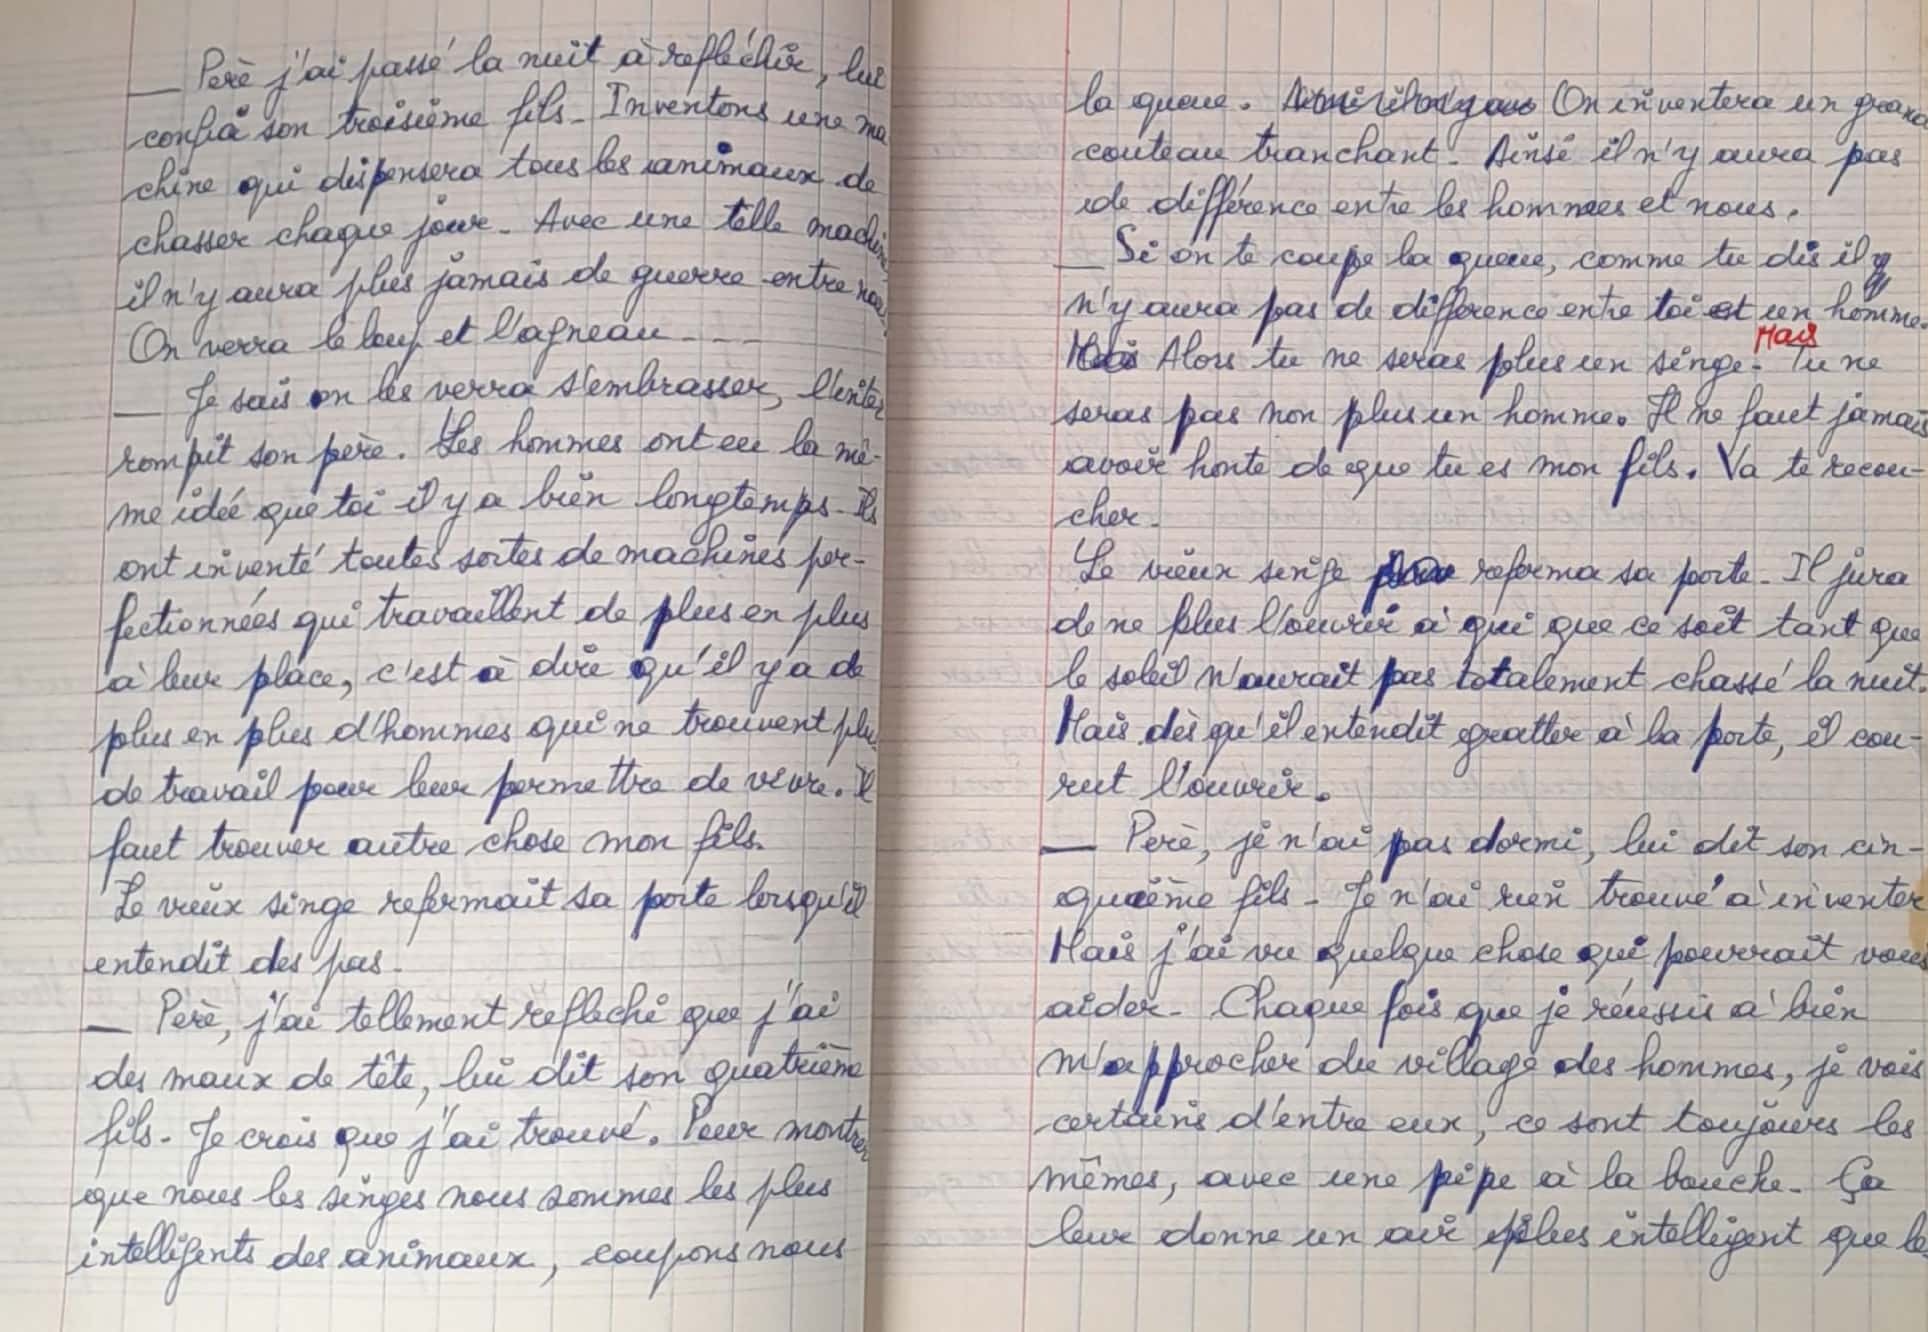 — Père j'ai passé la nuit à refléchir, lui
confia son troisième fils. Inventons une ma
chine qui dispensera tous les animaux de
chasser chaque jour. Avec une telle machine,
il n'y aura plus jamais de guerre entre nous.
On verra le loup et l'agneau - - - -
— Je sais on les verra s'embrasser, l'inter
rompit son père. Les hommes ont eu la mê-
me idée que toi il y a bien longtemps. Ils
ont inventé toutes sortes de machines per-
fectionnées qui travaillent de plus en plus
à leur place, c'est à dire qu'il y a de
plus en plus d'hommes qui ne trouvent plus
de travail pour leur permettre de vivre. Il
faut trouver autre chose mon fils.
Le vieux singe refermait sa porte lorsqu'il
entendit des pas.
— Père, j'ai tellement refléchi que j'ai
des maux de tête, lui dit son quatrième
fils. Je crois que j'ai trouvé. Pour montrer
que nous les singes nous sommes les plus
intelligents des animaux, coupons nous
la queue. On inventera un grand
couteau tranchant. Ainsi il n'y aura pas
de différence entre les hommes et nous.
— Si on te coupe la queue, comme tu dis il y
n'y aura pas de différence entre toi et un homme.
Alors tu ne seras plus un singe. Mais Tu ne
seras pas non plus un homme. Il ne faut jamais
avoir honte de que tu es mon fils. Va te recou-
cher.
Le vieux singe referma sa porte. Il jura
de ne plus l'ouvrir à qui que ce soit tant que
le soleil n'aurait pas totalement chassé la nuit.
Mais dès qu'il entendit gratter à la porte, il cou-
rut l'ouvrir.
— Père, je n'ai pas dormi, lui dit son cin-
quième fils. Je n'ai rien trouvé à inventer
Mais j'ai vu quelque chose qui pourrait vous
aider. Chaque fois que je réussis à bien
m'approcher du village des hommes, je vois
certains d'entre eux, ce sont toujours les
mêmes, avec une pipe à la bouche. Ça
leur donne un air plus intelligent que les